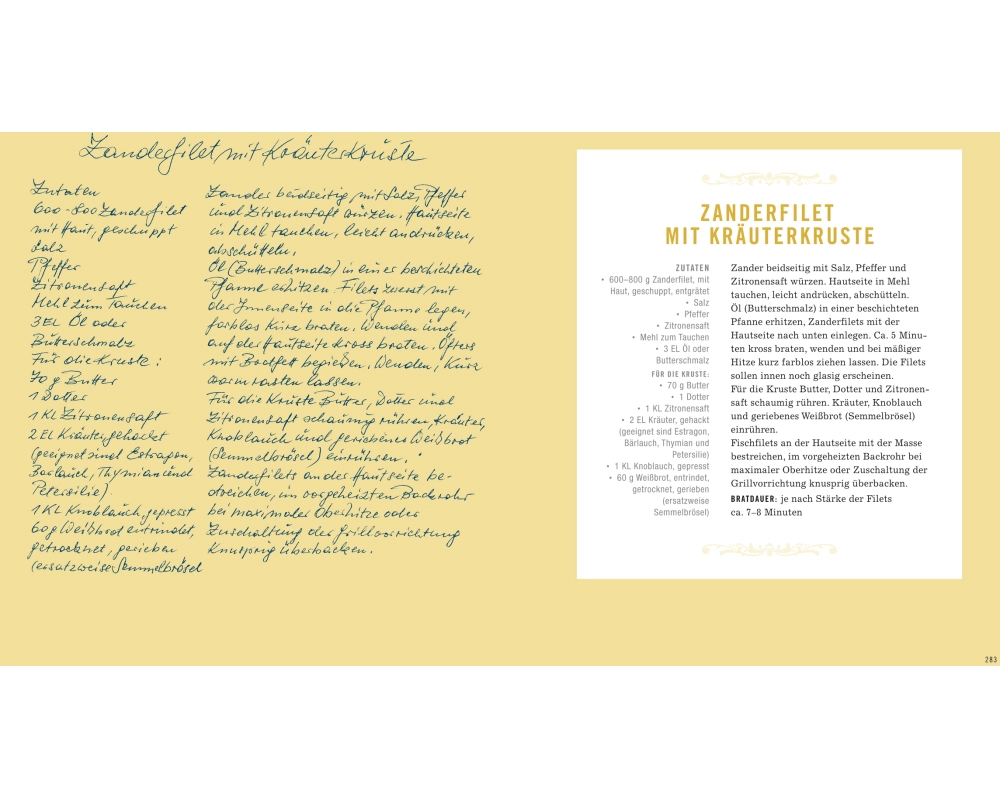 Zanderfilet mit Kräuterkruste
Zutaten
600-800 Zanderfilet
mit Haut, geschuppt
Salz
Pfeffer
Zitronensaft
Mehl zum Tauchen
3 EL Öl oder
Butterschmalz
Für die Kruste:
70 g Butter
1 Dotter
1 KL Zitronensaft
2 EL Kräuter, gehackt
(geeignet sind Estragon,
Bärlauch, Thymian und
Petersilie).
1 KL Knoblauch, gepresst
60 g Weißbrot entrindet,
getrocknet, gerieben
(ersatzweise Semmelbrösel
Zander beidseitig mit Salz, Pfeffer
und Zitronensaft würzen. Hautseite
in Mehl tauchen, leicht andrücken,
abschütteln.
Öl (Butterschmalz) in einer beschichteten
Pfanne erhitzen. Filets zuerst mit
der Innenseite in die Pfanne legen,
farblos kurz braten. Wenden und
auf der Hautseite kross braten. Öfters
mit Bratfett begießen. Wenden, kurz
warm rasten lassen.
Für die Kruste Butter, Dotter und
Zitronensaft schaumig rühren, Kräuter,
Knoblauch und geriebenes Weißbrot
(Semmelbrösel) einrühren.
Zanderfilets an der Hautseite be-
streichen, im vorgeheizten Backrohr
bei maximaler Oberhitze oder
Zuschaltung der Grillvorrichtung
knusprig überbacken.
ZANDERFILET
MIT KRÄUTERKRUSTE
ZUTATEN
• 600–800 g Zanderfilet, mit
Haut, geschuppt, entgrätet
• Salz
• Pfeffer
• Zitronensaft
• Mehl zum Tauchen
• 3 EL Öl oder
Butterschmalz
FÜR DIE KRUSTE:
• 70 g Butter
• 1 Dotter
• 1 KL Zitronensaft
• 2 EL Kräuter, gehackt
(geeignet sind Estragon,
Bärlauch, Thymian und
Petersilie)
• 1 KL Knoblauch, gepresst
• 60 g Weißbrot, entrindet,
getrocknet, gerieben
(ersatzweise
Semmelbrösel)
Zander beidseitig mit Salz, Pfeffer und
Zitronensaft würzen. Hautseite in Mehl
tauchen, leicht andrücken, abschütteln.
Öl (Butterschmalz) in einer beschichteten
Pfanne erhitzen, Zanderfilets mit der
Hautseite nach unten einlegen. Ca. 5 Minu-
ten kross braten, wenden und bei mäßiger
Hitze kurz farblos ziehen lassen. Die Filets
sollen innen noch glasig erscheinen.
Für die Kruste Butter, Dotter und Zitronen-
saft schaumig rühren. Kräuter, Knoblauch
und geriebenes Weißbrot (Semmelbrösel)
einrühren.
Fischfilets an der Hautseite mit der Masse
bestreichen, im vorgeheizten Backrohr bei
maximaler Oberhitze oder Zuschaltung der
Grillvorrichtung knusprig überbacken.
BRATDAUER: je nach Stärke der Filets
ca. 7–8 Minuten
283